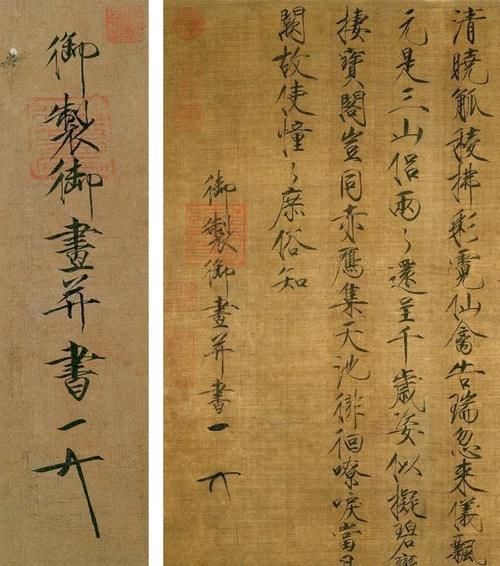 清曉觚稜拂彩霓仙禽告瑞忽來儀飄
元是三山侶兩〻還呈千歲姿似擬碧鸞
棲寶閣豈同赤鴈集天池徘徊嘹唳當
闕故使憧〻庶俗知
御製御畫并書
御製御畫并書